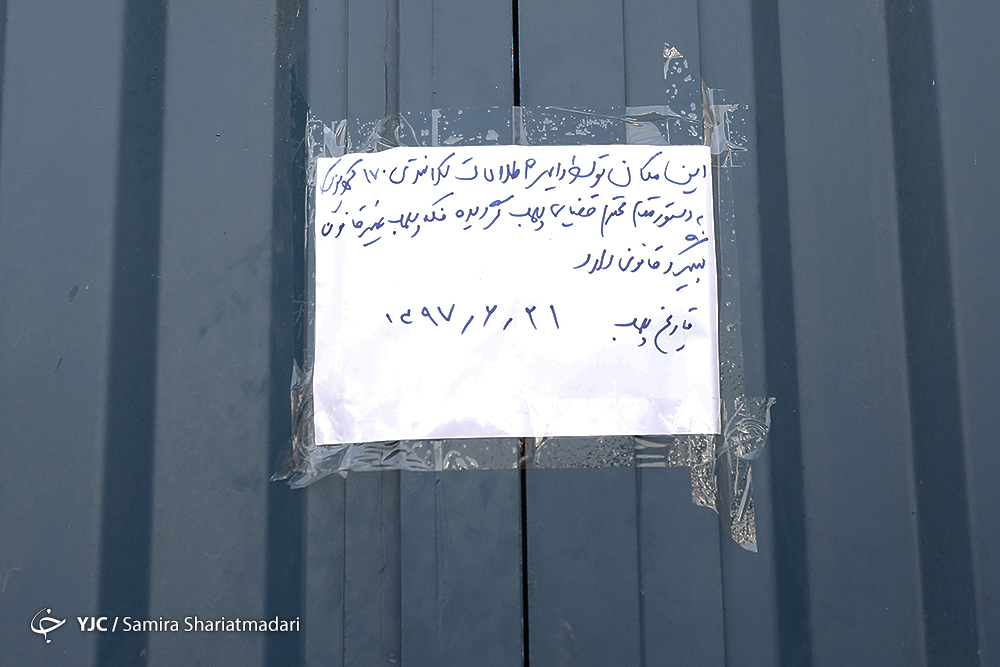 این مکان توسط دایره اطلاعات کلانتری ۱۷۰
به دستور مقام محترم قضایی پلمب گردیده فک پلمب غیرقانونی
پیگرد قانونی دارد
تاریخ پلمب ۱۳۹۷/۶/۲۱
YJC / Samira Shariatmadari